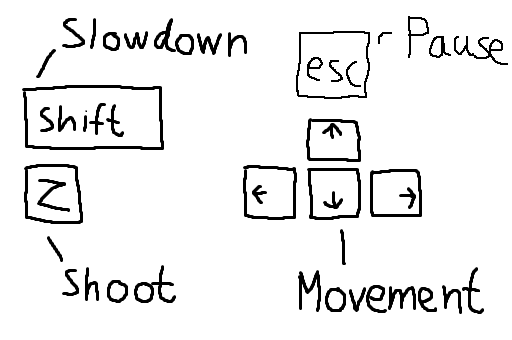 Slowdown
Shift
Z
Shoot
esc
Pause
↑
← ↓ →
Movement